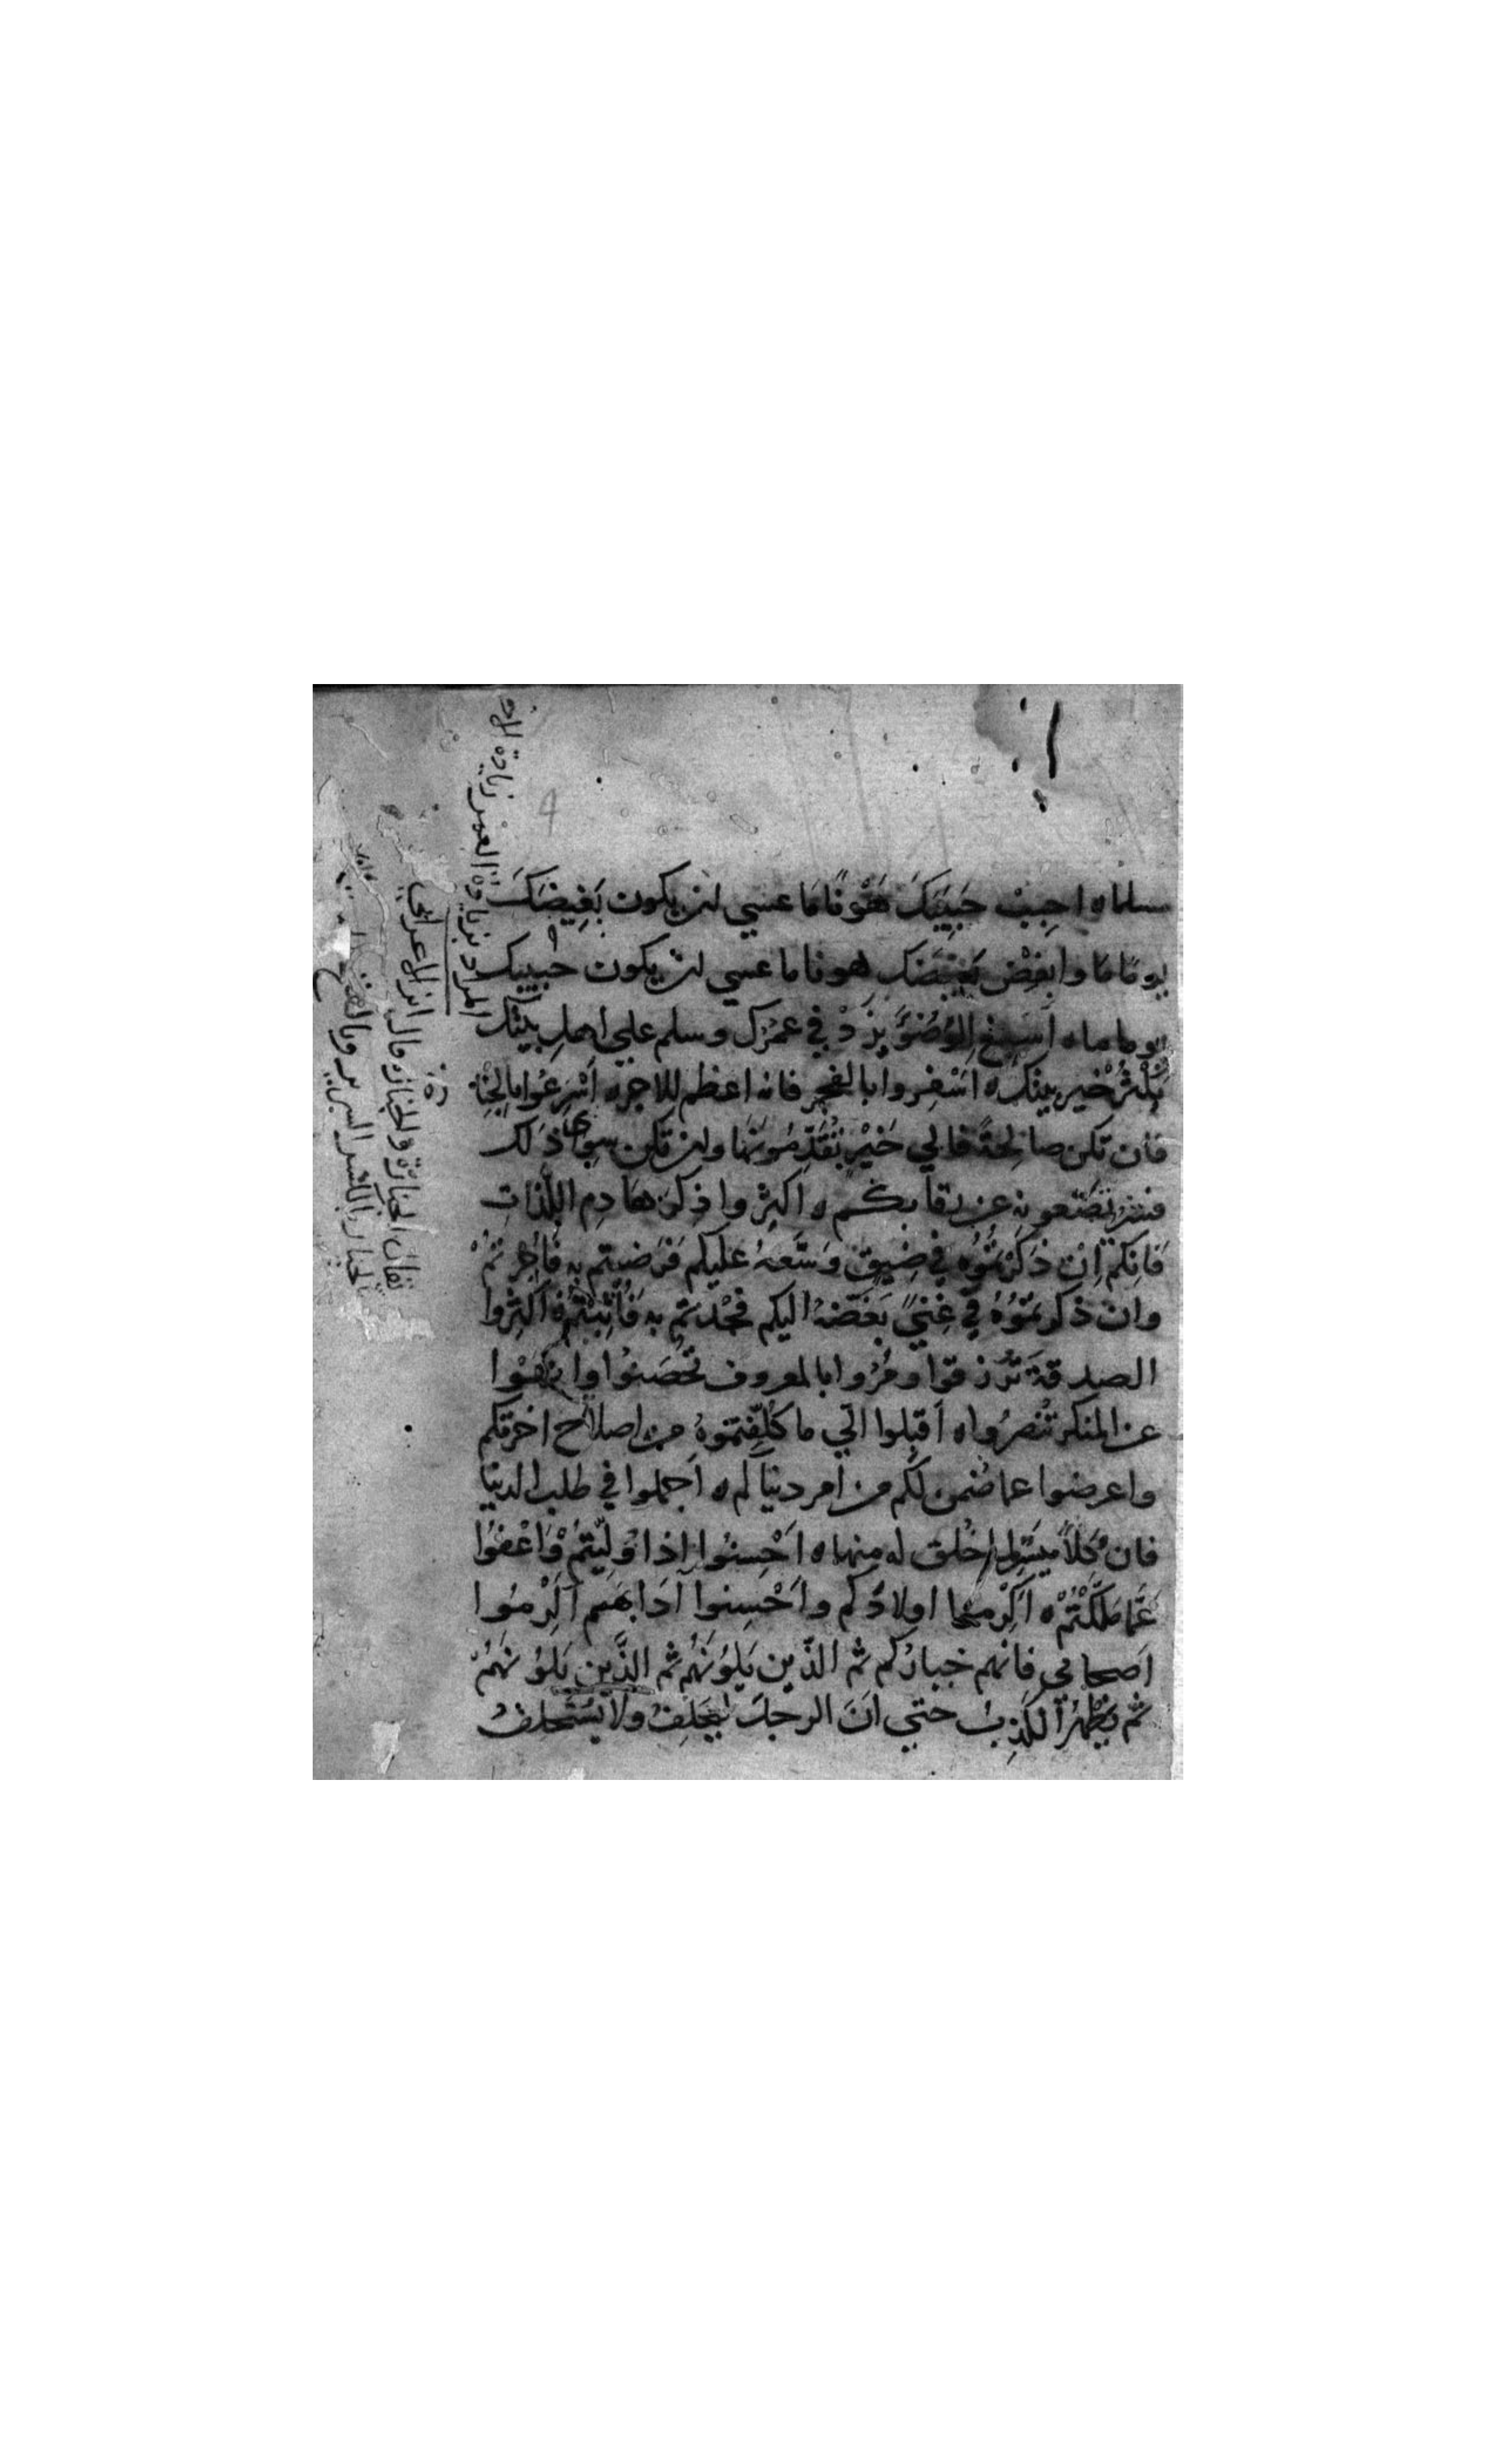 سلما ه احبِبْ حَبِيْبَكَ هَوْنًا مَا عسي ان يكون بَغِيضَكَ
يومًا مَا وابغِضْ بَغِيْضَك هونا ما عسي ان يكون حبيبك
يوما ما ه أَسبِغِ الوُضُؤَ يَزدْ في عمرك وسلم علي اهل بيتك
يَكْثُرْ خَيرُ بيتك ه اسْفِروا بالفجر فانه اعظم للاجر ه أَسْرِعُوا بالجِنا
فان تكن صالِحةً فالي خَيْرٍ تُقَدِّمُونَهَا وان تكن سِوَي ذَلك
فشر تضعونه عن رقابكم ه اكثِروا ذكر هَادِم اللذاتِ
فَانكم اِنْ ذكَرْتمُوُه في ضِيقٍ وَسَّعَهُ عَليكم فَرَضيتم به فأُجِرْتُمْ
وان ذكرتمُوُهُ في غِنيً بَغَّضَهُ اليكم فجُدْتم به فَأُثِبْتُمْ ه اكثِرُوا
الصدقة تُرْزقوا ومُرُوا بالمعروف تخصَبُوا وانهَوْا
عن المنكر تُنْصَرُوا ه أَقبِلوا الَي ما كُلِّفتموُهُ من اصلاَح اخرتكم
واعرضوا عما ضُمن لكُم من امر دنياَكم ه أَجملوا في طلب الدنيا
فان كُلاًّ ميَسَّرٌ لما خُلق له منها ه اَحْسِنُوا إذا وُلِّيتُمْ وَاعْفُوْا
عَمَّا مَلَكْتُمْ ه اكرِمُوا اولادَكم واَحْسِنوا آدَابَهَم اَكرِمُوا
اَصحابي فانهم خيارُكم ثم الذّين يَلوُنَهُمْ ثم الذَّين يَلوُنَهُمْ
ثم يَظْهَرُ الكَذِبُ حتي انَ الرجلَ يَحلِفُ ولاَ يُسْتَحلفُ
المراد بزيادة العمر زيادة
يقال الجنازة والجنازه قال ابن الاعرابي